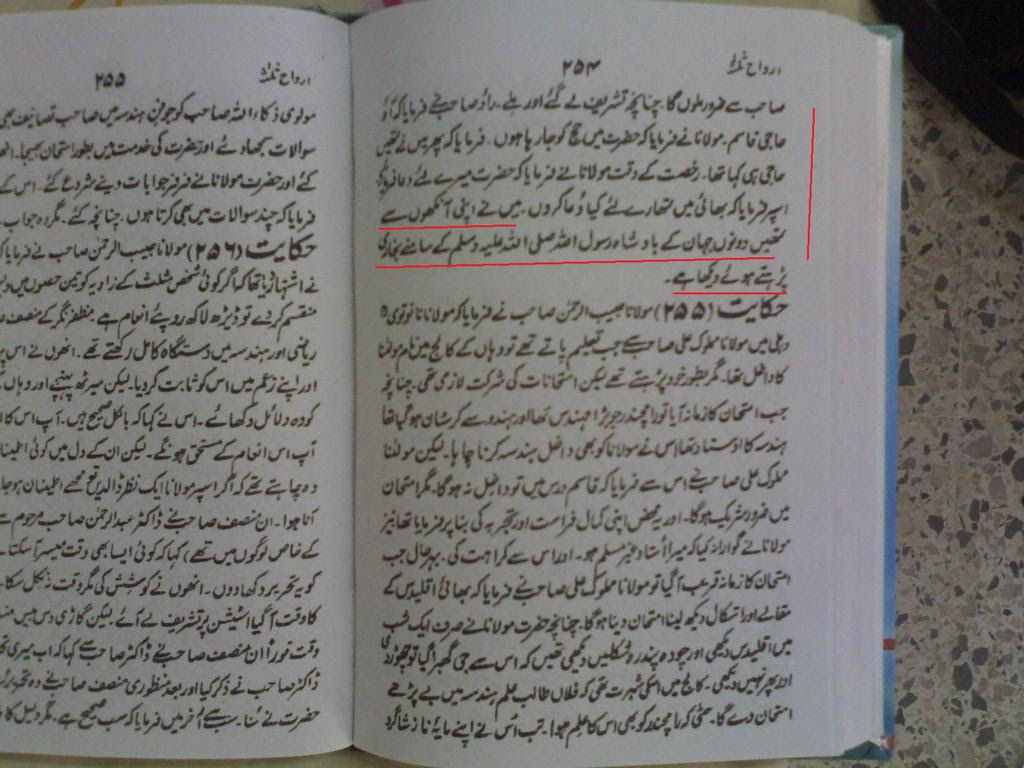 ارواح ثلثہ
۲۵۴
صاحب سے ضرور ملوں گا. چنانچہ تشریف لے گئے اور ملے. راؤ صاحب نے فرمایا کہ آؤ
حاجی قاسم. مولانا نے فرمایا کہ حضرت میں حج کو جا رہا ہوں. فرمایا کہ پھر میں نے تمھیں
حاجی ہی کہا تھا. رخصت کے وقت مولانا نے فرمایا کہ حضرت میرے لئے دعا فرمائے
اسپر فرمایا کہ بھائی میں تمھارے لئے کیا دُعا کروں. میں نے اپنی آنکھوں سے
تمھیں دونوں جہان کے بادشاہ رسول اللہ صلی اللہ علیہ وسلم کے سامنے بخاری
پڑہتے ہوئے دیکھا ہے.
حکایت (۲۵۵) مولانا حبیب الرحمٰن صاحب نے فرمایا کہ مولانا نانوتوی
دہلی میں مولانا مملوک علی صاحب سے جب تعلیم پاتے تھے تو وہاں کے کالج میں نام مولٰنا
کا داخل تھا. مگر بطور خود پڑہتے تھے لیکن امتحانات کی شرکت لازمی تھی. چنانچہ
جب امتحان کا زمانہ آیا تو رامچندر جو بڑا مہندس تھا اور ہندو سے کرسٹان ہو گیا تھا
ہندسہ کا اوستاد تھا اس نے مولانا کو بھی داخل ہندسہ کرنا چاہا. لیکن مولٰنا
مملوک علی صاحب نے اس سے فرمایا کہ قاسم درس میں تو داخل نہ ہوگا. مگر امتحان
میں ضرور شریک ہوگا. اور یہ محض اپنی کمال فراست اور تجربہ کی بنا پر فرمایا تھا نیز
مولانا نے گوارا نہ کیا کہ میرا اُستاد غیر مسلم ہو. اور اس سے کراہت کی. بہرحال جب
امتحان کا زمانہ قریب آگیا تو مولانا مملوک علی صاحب نے فرمایا کہ بھائی اقلیدس کے
مقالے اور اشکال دیکھ لینا امتحان دینا ہوگا. چنانچہ حضرت مولانا نے صرف ایک شب
میں اقلیدس دیکھی اور چودہ پندرہ شکلیں دیکھی تھیں کہ اس سے جی گھبرا گیا تو چھوڑ دی
اور پھر نہیں دیکھی. کالج میں اسکی شہرت تھی کہ فلاں طالب علم ہندسہ میں بے پڑھے
امتحان دے گا. حتٰی کہ رامچندر کو بھی اس کا علم ہوا. تب اُس نے اپنے مایۂ ناز شاگرد
ارواح ثلثہ
۲۵۵
مولوی ذکاء اللہ صاحب کو جو فن ہندسہ میں صاحب تصانیف بھی
سوالات سمجھا دئے اور حضرت کی خدمت میں بطور امتحان بھیجا.
گئے اور حضرت مولانا نے فرفر جوابات دینے شروع کئے. اس کے
فرمایا کہ چند سوالات میں بھی کرتا ہوں. چنانچہ کئے. مگر وہ جواب
حکایت (۲۵۶) مولانا حبیب الرحمٰن صاحب نے فرمایا کہ
نے اشتہار دیا تھا کہ اگر کوئی شخص مثلث کے زاویہ کو تین حصوں میں
منقسم کر دے تو ڈیڑھ لاکھ روپئے انعام ہے. مظفر نگر کے منصف
ریاضی اور ہندسہ میں دستگاہ کامل رکھتے تھے. انھوں نے اس پر
اور اپنے زعم میں اس کو ثابت کر دیا. لیکن میرٹھ پہنچے اور وہاں
کو وہ دلائل دکھائے. اس نے کہا کہ بالکل صحیح ہیں. آپ اس کا
آپ اس انعام کے مستحق ہونگے. لیکن ان کے دل میں کوئی
وہ چاہتے تھے کہ اگر اسپر مولانا ایک نظر ڈالدیں تو مجھے اطمینان ہو جا
آنا ہوا. ان منصف صاحب نے ڈاکٹر عبدالرحمٰن صاحب مرحوم سے
کے خاص لوگوں میں تھے) کہا کہ کوئی ایسا بھی وقت میسر آسکتا
کو یہ تحریر دکھا دوں. انھوں نے کوشش کی مگر وقت نہ نکل سکا
کا وقت آگیا اسٹیشن پر تشریف لے آئے. لیکن گاڑی دس بیس
وقت فوراً ان منصف صاحب نے ڈاکٹر صاحب سے کہا کہ اب میری
ڈاکٹر صاحب نے ذکر کیا اور بعد منظوری منصف صاحب نے وہ تحریر
حضرت نے سُنا. سب سے آخر میں فرمایا کہ سب صحیح ہے. مگر دلیل کا